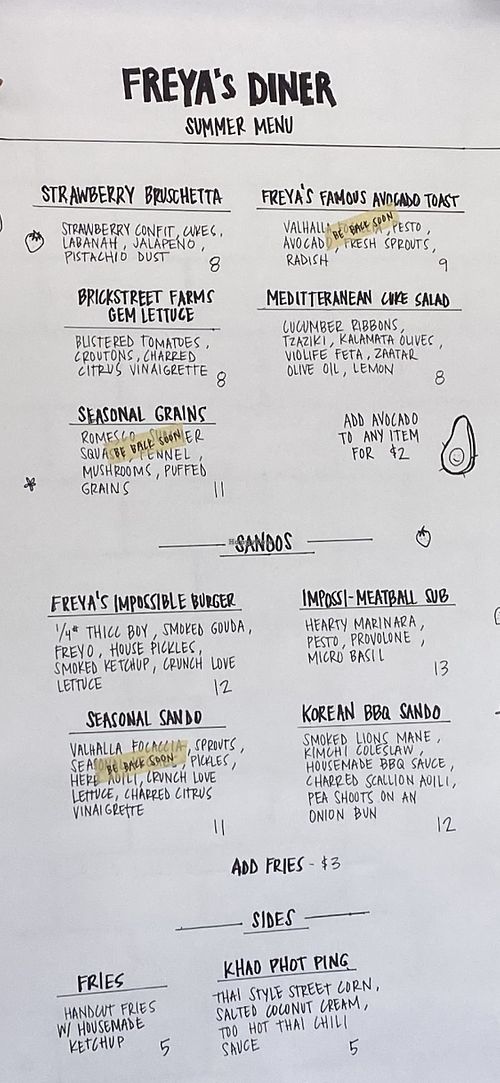 FREYA'S DINER
SUMMER MENU
STRAWBERRY BRUSCHETTA
STRAWBERRY CONFIT, CUKES,
LABANAH, JALAPEÑO,
PISTACHIO DUST
8
FREYA'S FAMOUS AVOCADO TOAST
VALHALLA PESTO,
BE BACK SOON
AVOCADO, FRESH SPROUTS,
RADISH
9
BRICKSTREET FARMS
GEM LETTUCE
BLISTERED TOMATOES,
CROUTONS, CHARRED
CITRUS VINAIGRETTE
8
MEDITTERANEAN CUKE SALAD
CUCUMBER RIBBONS,
TZAZIKI, KALAMATA OLIVES,
VIOLIFE FETA, ZAATAR
OLIVE OIL, LEMON
8
SEASONAL GRAINS
ROMESCO,
BE BACK SOON
FENNEL,
MUSHROOMS, PUFFED
GRAINS
11
ADD AVOCADO
TO ANY ITEM
FOR $2
SANDOS
FREYA'S IMPOSSIBLE BURGER
1/4# THICC BOY, SMOKED GOUDA,
FREYO, HOUSE PICKLES,
SMOKED KETCHUP, CRUNCH LOVE
LETTUCE
12
IMPOSSI-MEATBALL SUB
HEARTY MARINARA,
PESTO, PROVOLONE,
MICRO BASIL
13
SEASONAL SANDO
VALHALLA FOCACCIA, SPROUTS,
PICKLES,
BE BACK SOON
HERB AUILI, CRUNCH LOVE
LETTUCE, CHARRED CITRUS
VINAIGRETTE
11
KOREAN BBQ SANDO
SMOKED LIONS MANE,
KIMCHI COLESLAW,
HOUSEMADE BBQ SAUCE,
CHARRED SCALLION AUILI,
PEA SHOOTS ON AN
ONION BUN
12
ADD FRIES - $3
SIDES
FRIES
HANDCUT FRIES
W/ HOUSEMADE
KETCHUP
5
KHAO PHOT PING
THAI STYLE STREET CORN,
SALTED COCONUT CREAM,
TOO HOT THAI CHILI
SAUCE
5